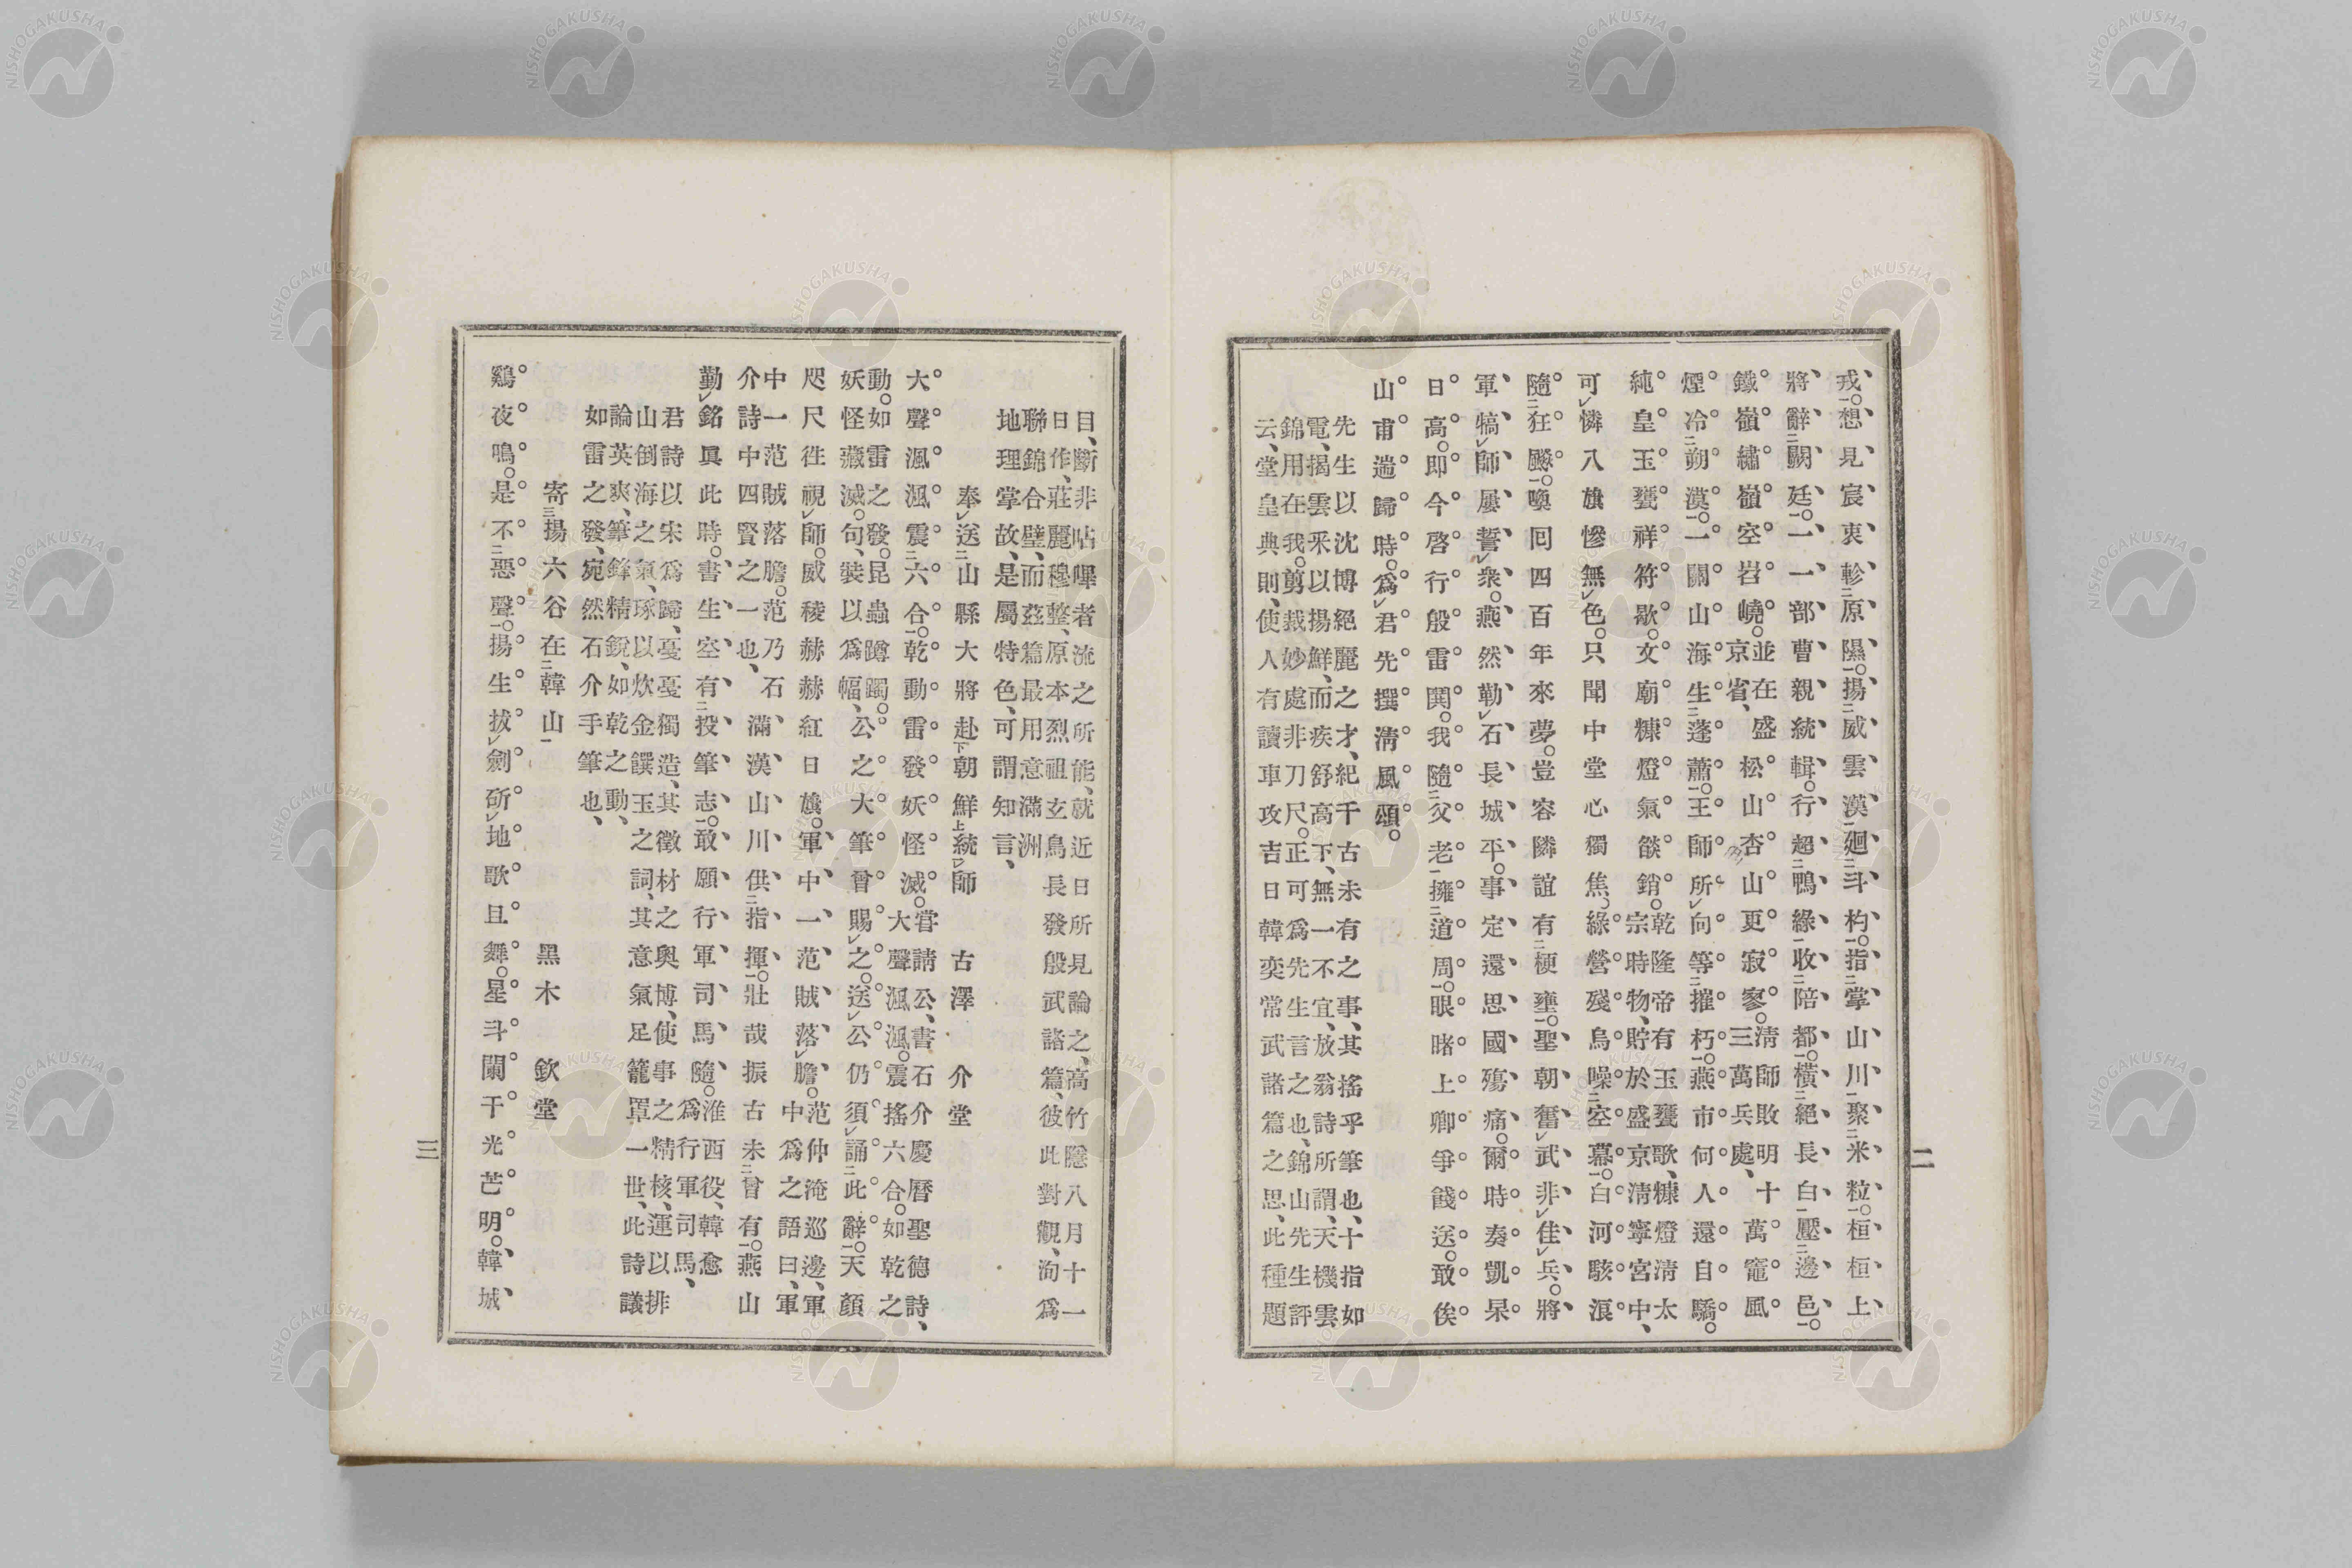 戎。想見宸衷軫原隰。揚威雲漢廻斗杓。指掌山川聚米粒。桓桓上
將辭闕廷。一一部曹親統輯。行超鴨綠收陪都。橫絕長白壓邊邑。
鐵嶺繡嶺空岩嶢。並在盛京省、松山杏山更寂寥。淸師敗明十三萬兵處、萬竈風
煙冷朔漠。一關山海生蓬蕭。王師所向等摧朽。燕市何人還自驕。
純皇玉甕祥符歇。文廟糠燈氣燄銷。乾隆帝有玉甕歌、糠燈淸太宗時物、貯於盛京淸寧宮中、
可憐八旗慘無色。只聞中堂心獨焦、綠營殘烏噪空幕。白河駭浪
隨狂飈。喚回四百年來夢。豈容隣誼有梗壅。聖朝奮武非佳兵。將
軍犒師屢誓衆。燕然勒石長城平。事定還思國殤痛。爾時奏凱杲
日高。即今啓行殷雷鬨。我隨父老擁道周。眼睹上卿爭餞送。敢俟
山甫遄歸時。爲君先撰淸風頌。
先生以沈博絕麗之才、紀千古未有之事、其搖乎筆也、十指如
電、揭雲釆以揚鮮、而疾舒高下、無一不宜、放翁詩所謂、天機雲
錦用在我。剪裁妙處非刀尺。正可爲先生言之也、錦山先生評
云、堂皇典則、使人有讀車攻吉日韓奕常武諸篇之思、此種題
二
目、斷非呫嗶者流之所能、就近日所見論之、高竹隱八月十一
日作、莊麗穆整、原本烈祖玄鳥長發殷武諸篇、彼此對觀、洵爲
聯錦合璧、而玆篇最用意滿洲
地理掌故、是屬特色、可謂知言、
奉送山縣大將赴朝鮮統師 古澤介堂
大聲渢渢震六合。乾動雷發妖怪滅。嘗請公、書石介慶曆聖德詩、大聲渢渢。震搖六合。如乾之
動。如雷之發。昆蟲蹢躅。妖怪藏滅。句、裝以爲幅、公之大筆曾賜之。送公仍須誦此辭。天顏
咫尺徃視師。威稜赫赫紅日旗。軍中一范賊落膽。范仲淹巡邊、軍中爲之語曰、軍
中一范賊落膽。范乃石介詩中四賢之一也、滿漢山川供指揮。壯哉振古未曾有。燕山
勤銘眞此時。書生空有投筆志。敢願行軍司馬隨。淮西役、韓愈爲行軍司馬、
君詩以宋爲歸、憂憂獨造、其徵材之奧博、使事之精核、運以排
山倒海之氣、琢以炊金饌玉之詞、其意氣足籠罩一世、此詩議
論英爽、筆鋒精銳、如乾之動、
如雷之發、宛然石介手筆也、
寄揚六谷在韓山 黑木欽堂
鷄夜鳴。是不惡聲。揚生拔劍斫地歌且舞。星斗闌干光芒明。韓城
三